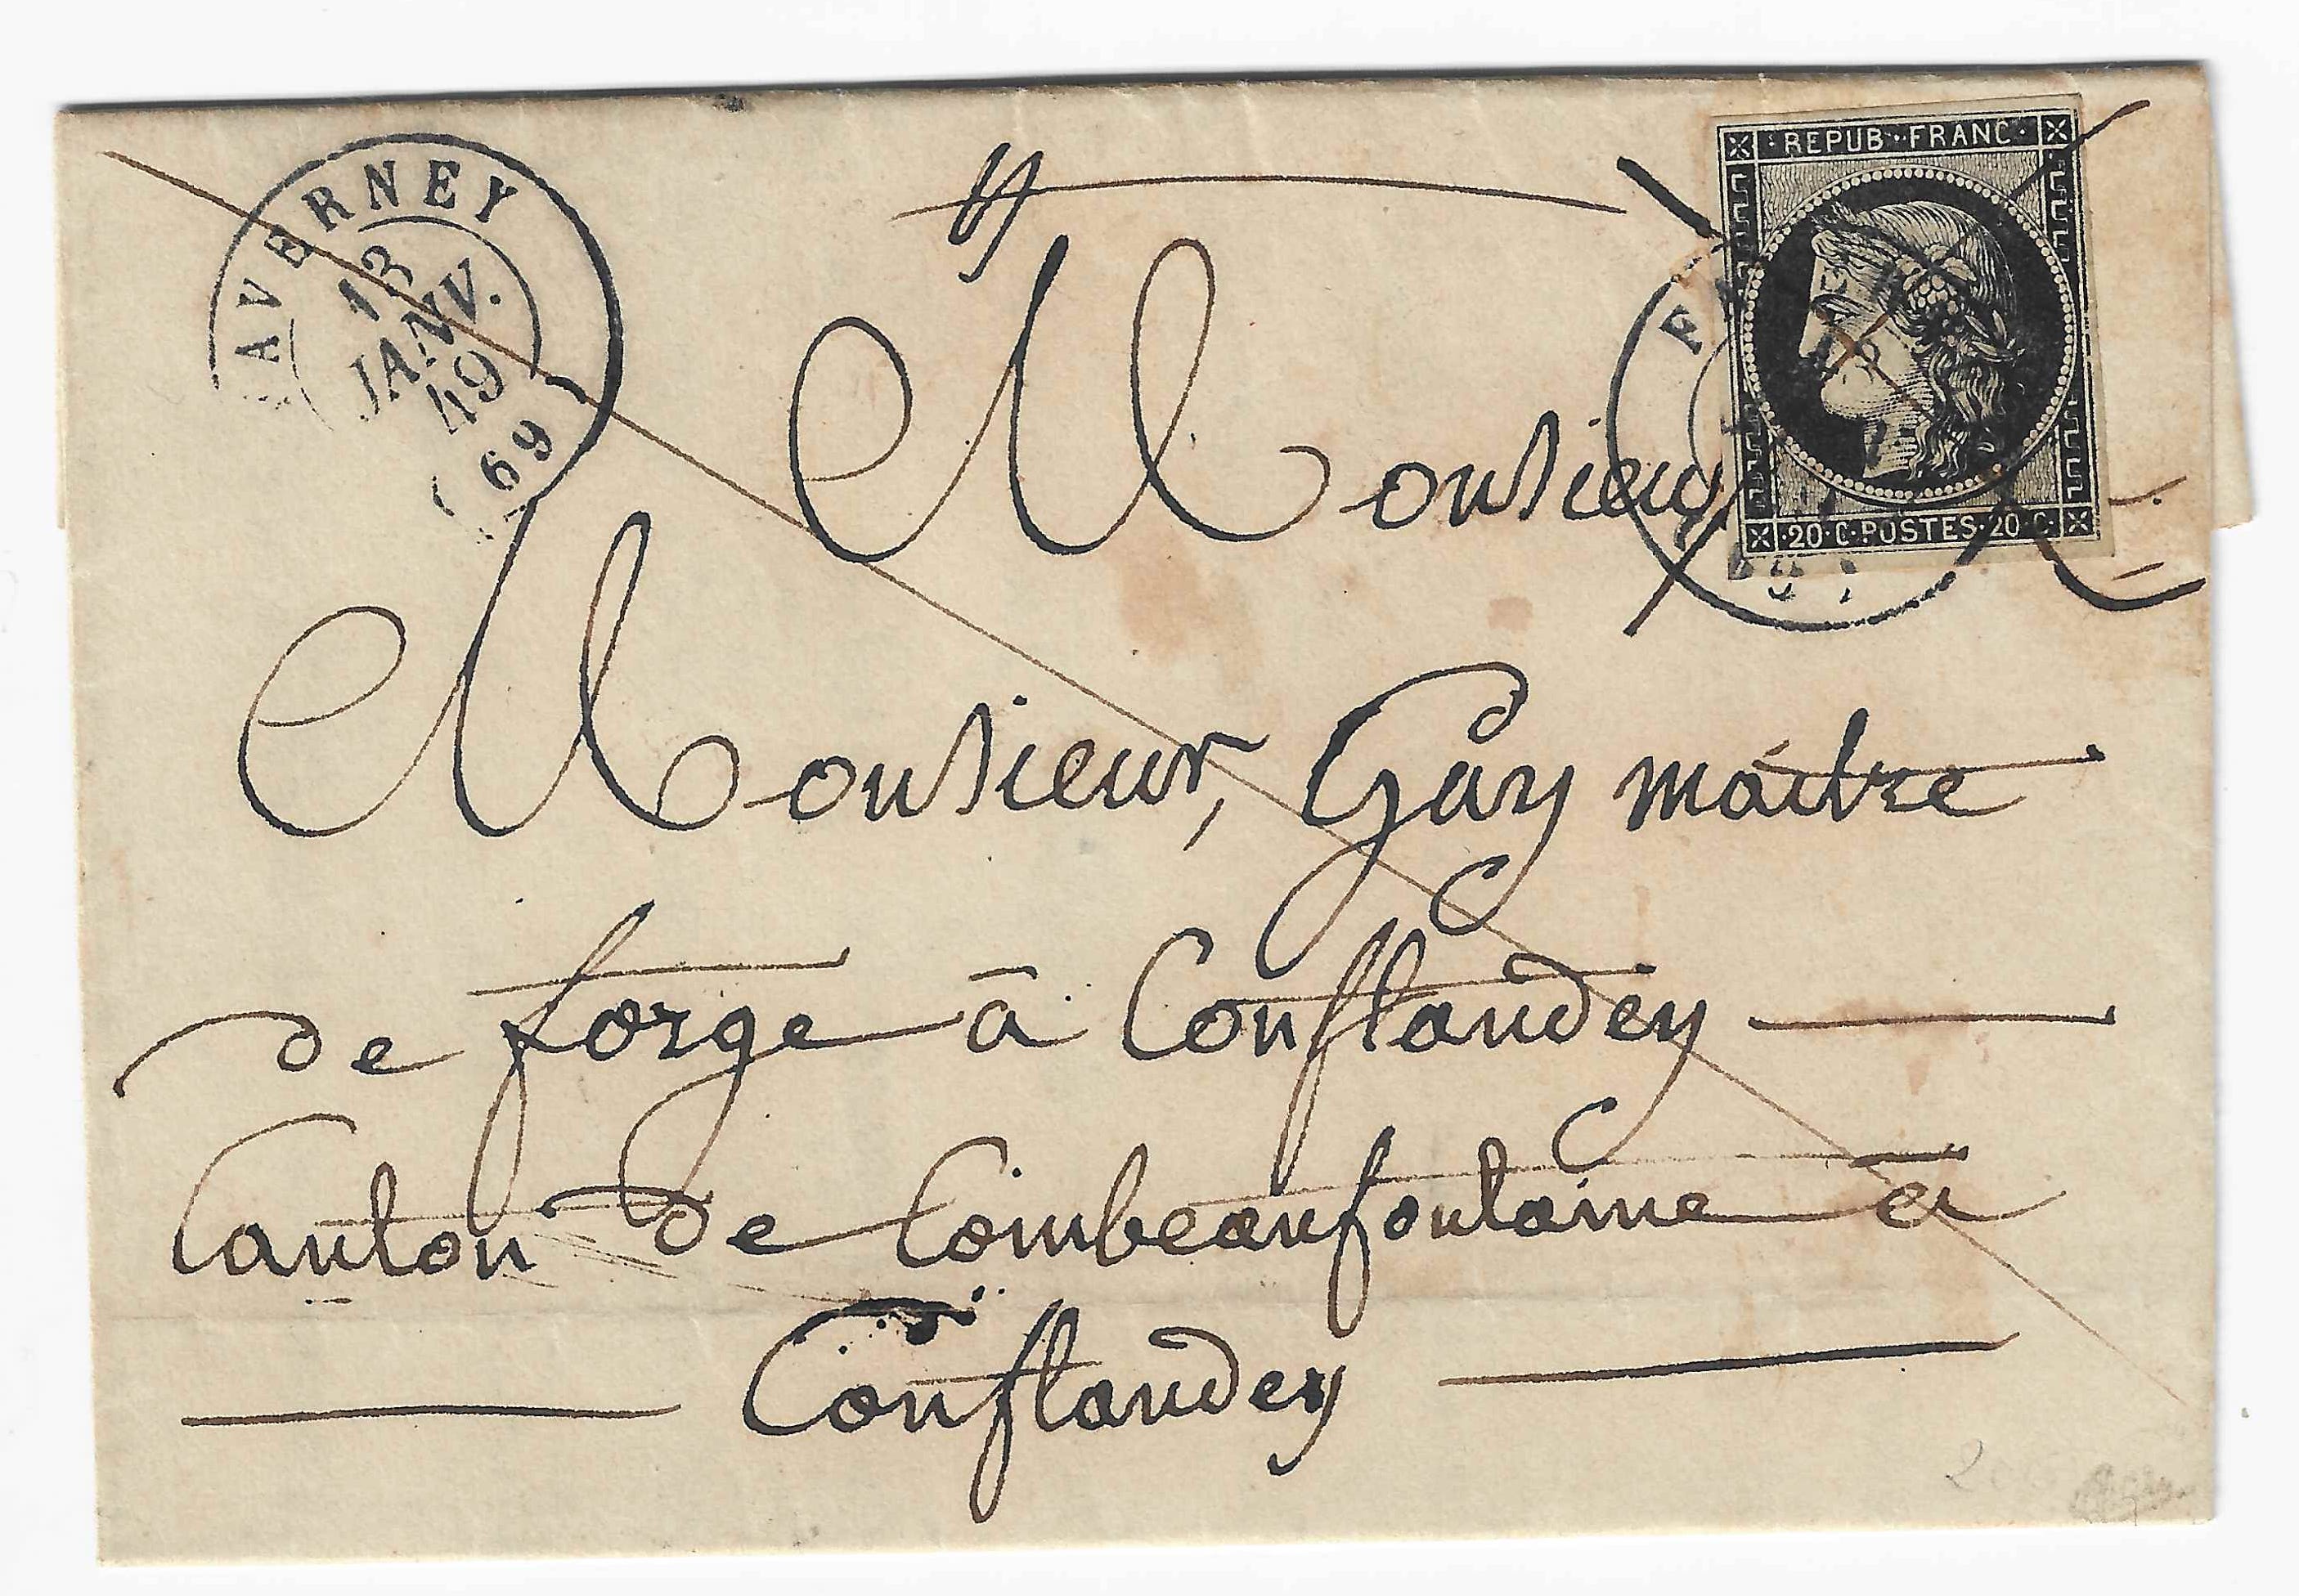 FAVERNEY
13
JANV.
49
(69)
REPUB·FRANC·
·20·C·POSTES·20·C·
Monsieur
Monsieur, Gay maitre
de forge à Conflandey
Canton de Combeaufontaine a
Conflandey